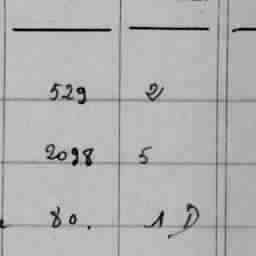 529 2
2098 5
80. 1 D